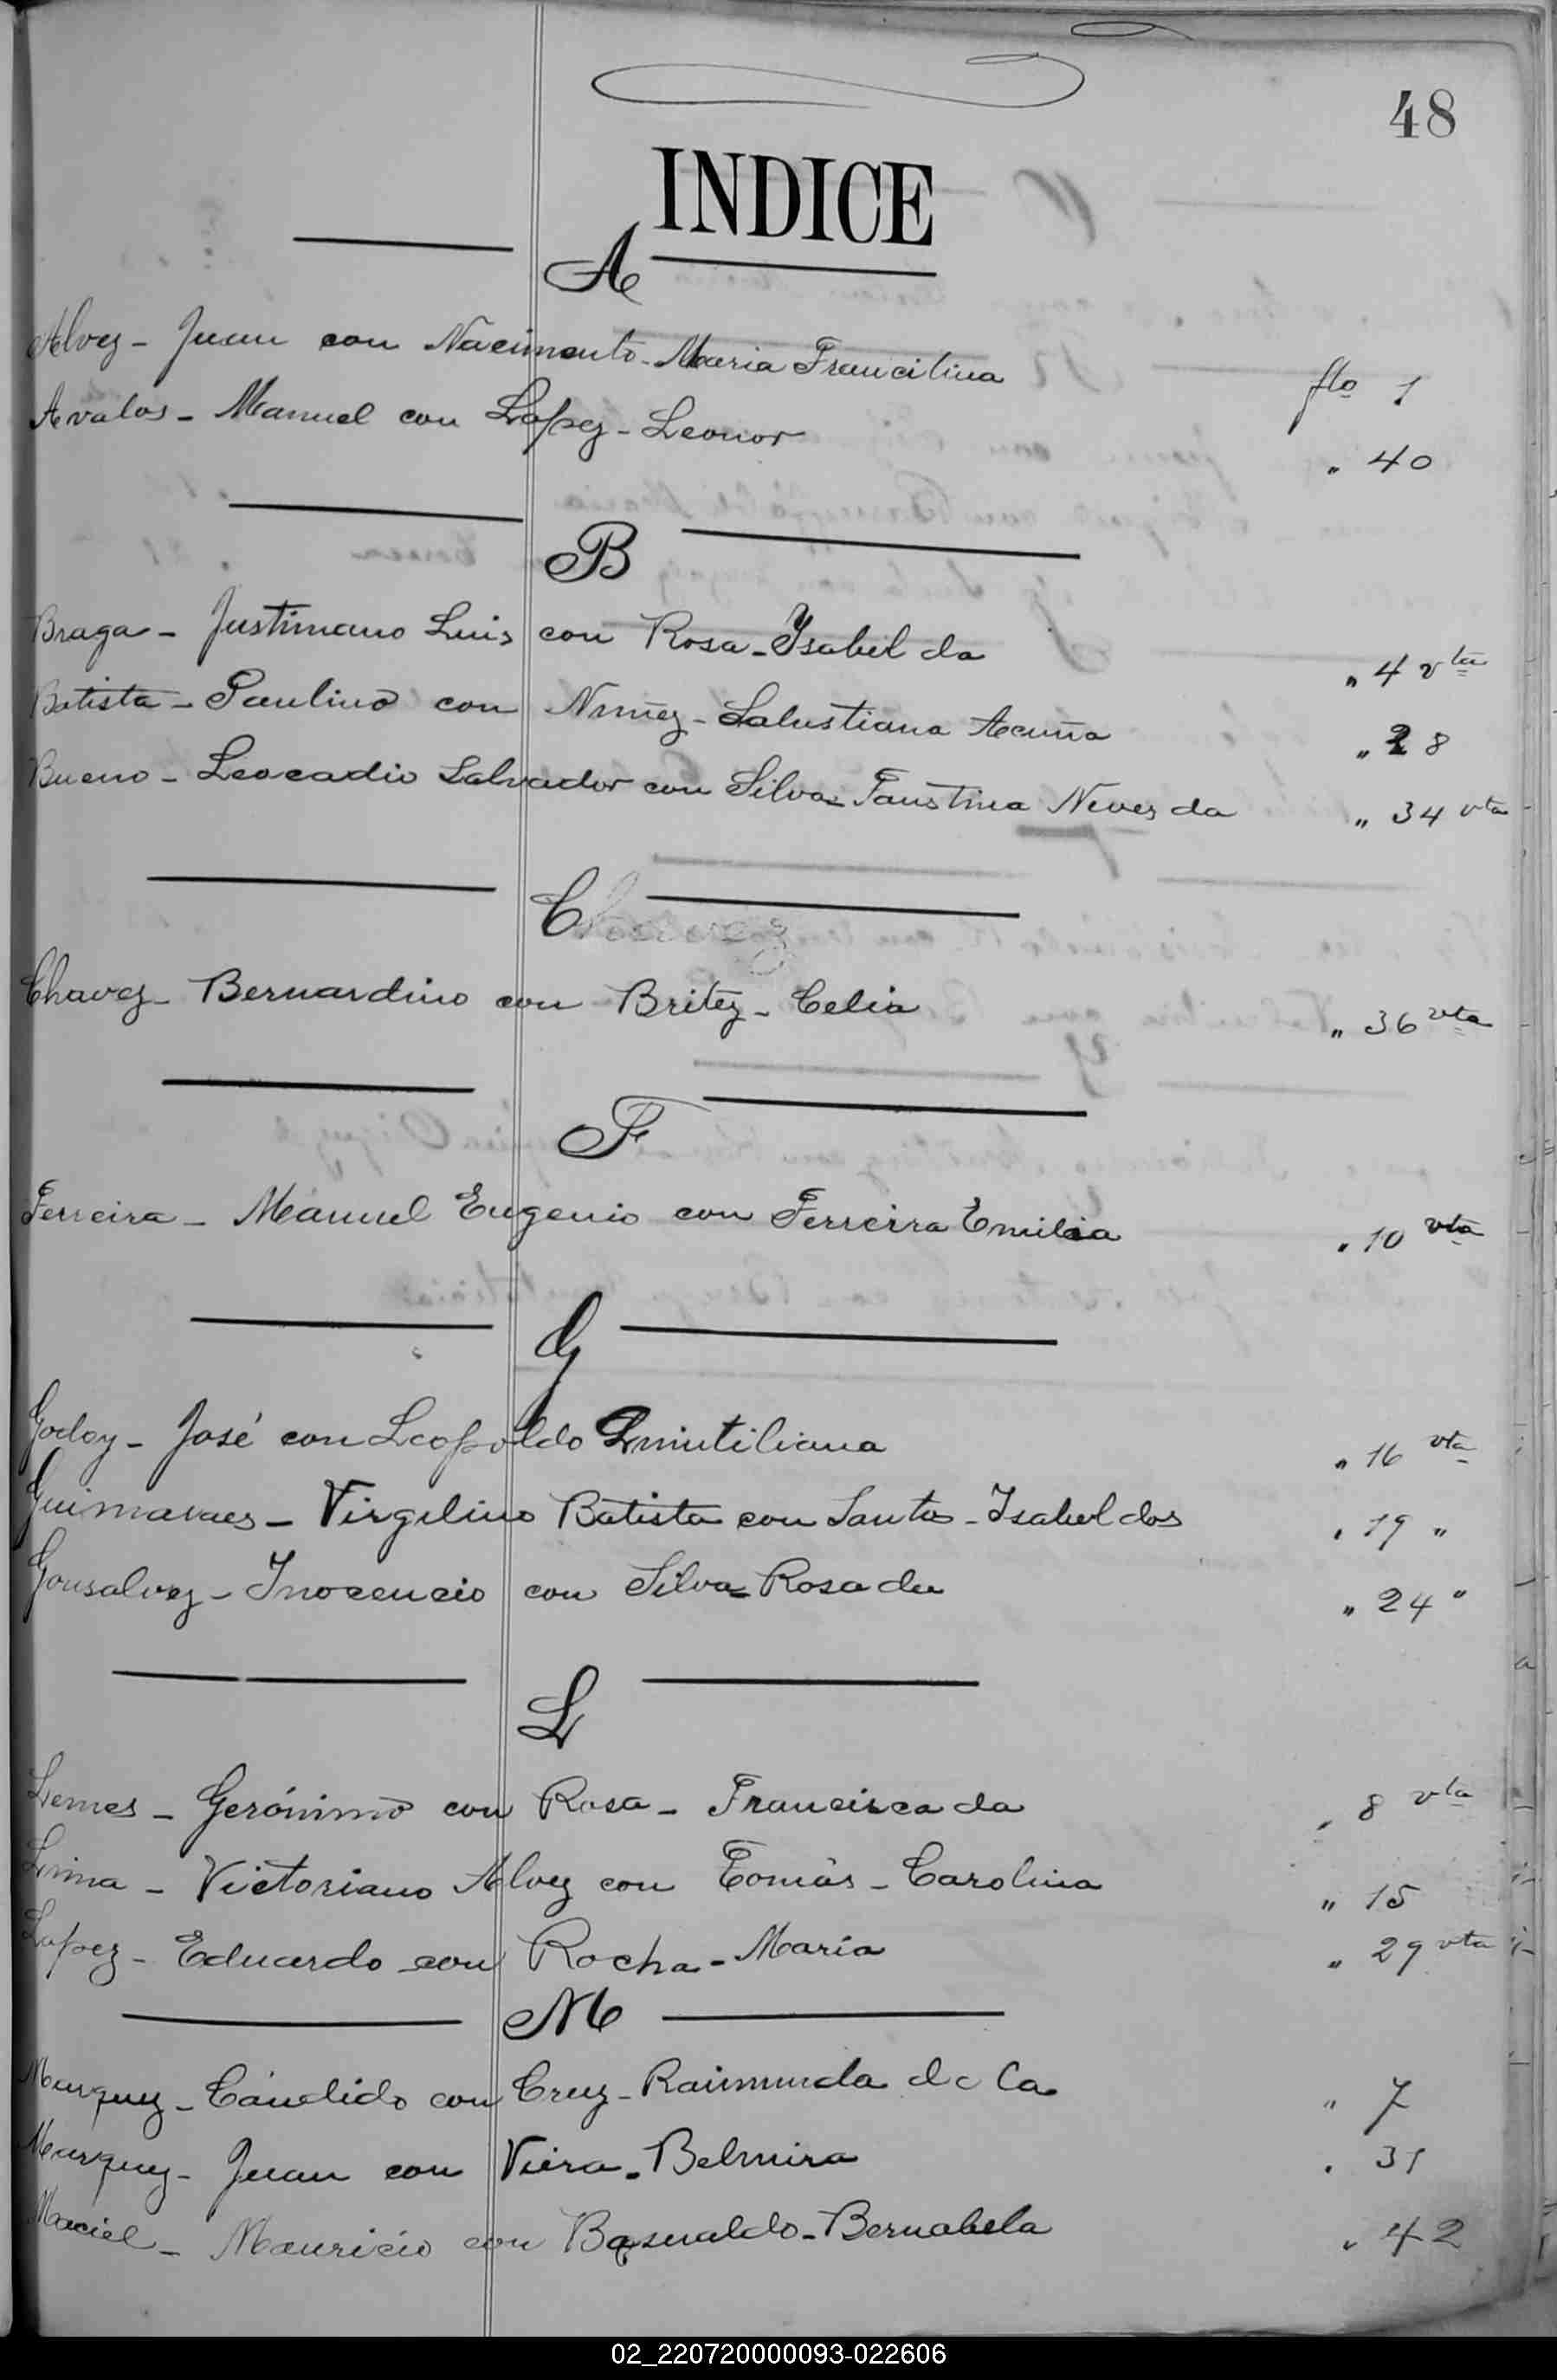 48
INDICE
A
Alvez - Juan con Nacimento - Maria Francilina flo 1
Avalos - Manuel con Lopez - Leonor " 40
B
Braga - Justiniano Luis con Rosa - Ysabel da " 4 vta
Batista - Paulino con Nuñez - Salustiana Acuña " 28
Bueno - Leocadio Salvador con Silva - Faustina Neves da " 34 vta
C
Chavez - Bernardino con Britez - Celia " 36 vta
F
Ferreira - Manuel Eugenio con Ferreira Emilia " 10 vta
G
Godoy - José con Leopoldo Quintiliana " 16 vta
Guimaraes - Virgilino Batista con Santos - Isabel dos " 19 "
Gonsalvez - Inocencio con Silva - Rosa da " 24 "
L
Lemes - Gerónimo con Rosa - Francisca da " 8 vta
Lima - Victoriano Alvez con Tomás - Carolina " 15
Lopez - Eduardo con Rocha - María " 29 vta
M
Marquez - Cándido con Cruz - Raimunda de la " 7
Marquez - Juan con Viera - Belmira " 31
Maciel - Mauricio con Basualdo - Bernabela " 42
02_220720000093-022606